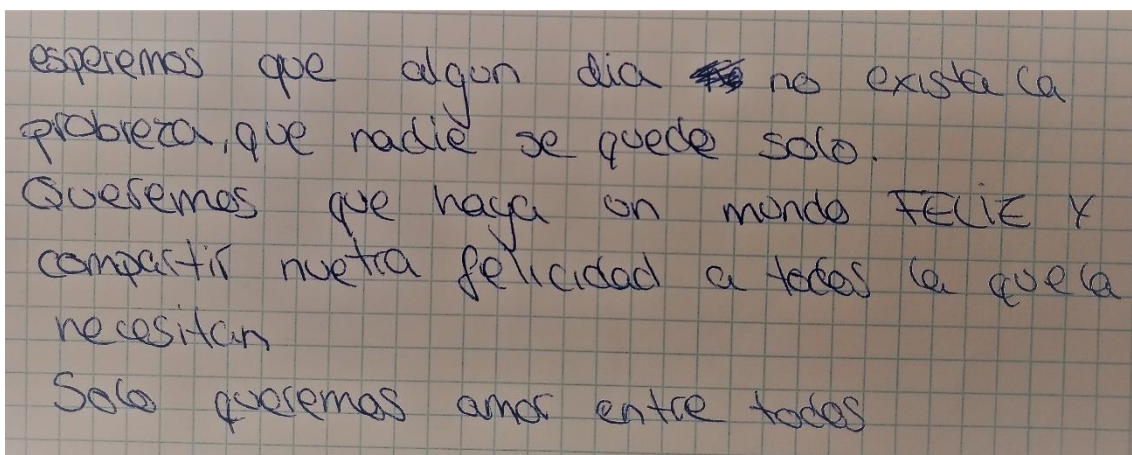 esperemos que algun dia no exista la
probreza, que nadie se quede solo.
Queremos que haga un mundo FELIZ Y
compartir nuetra felicidad a todos la que la
necesitan
Solo queremos amor entre todos